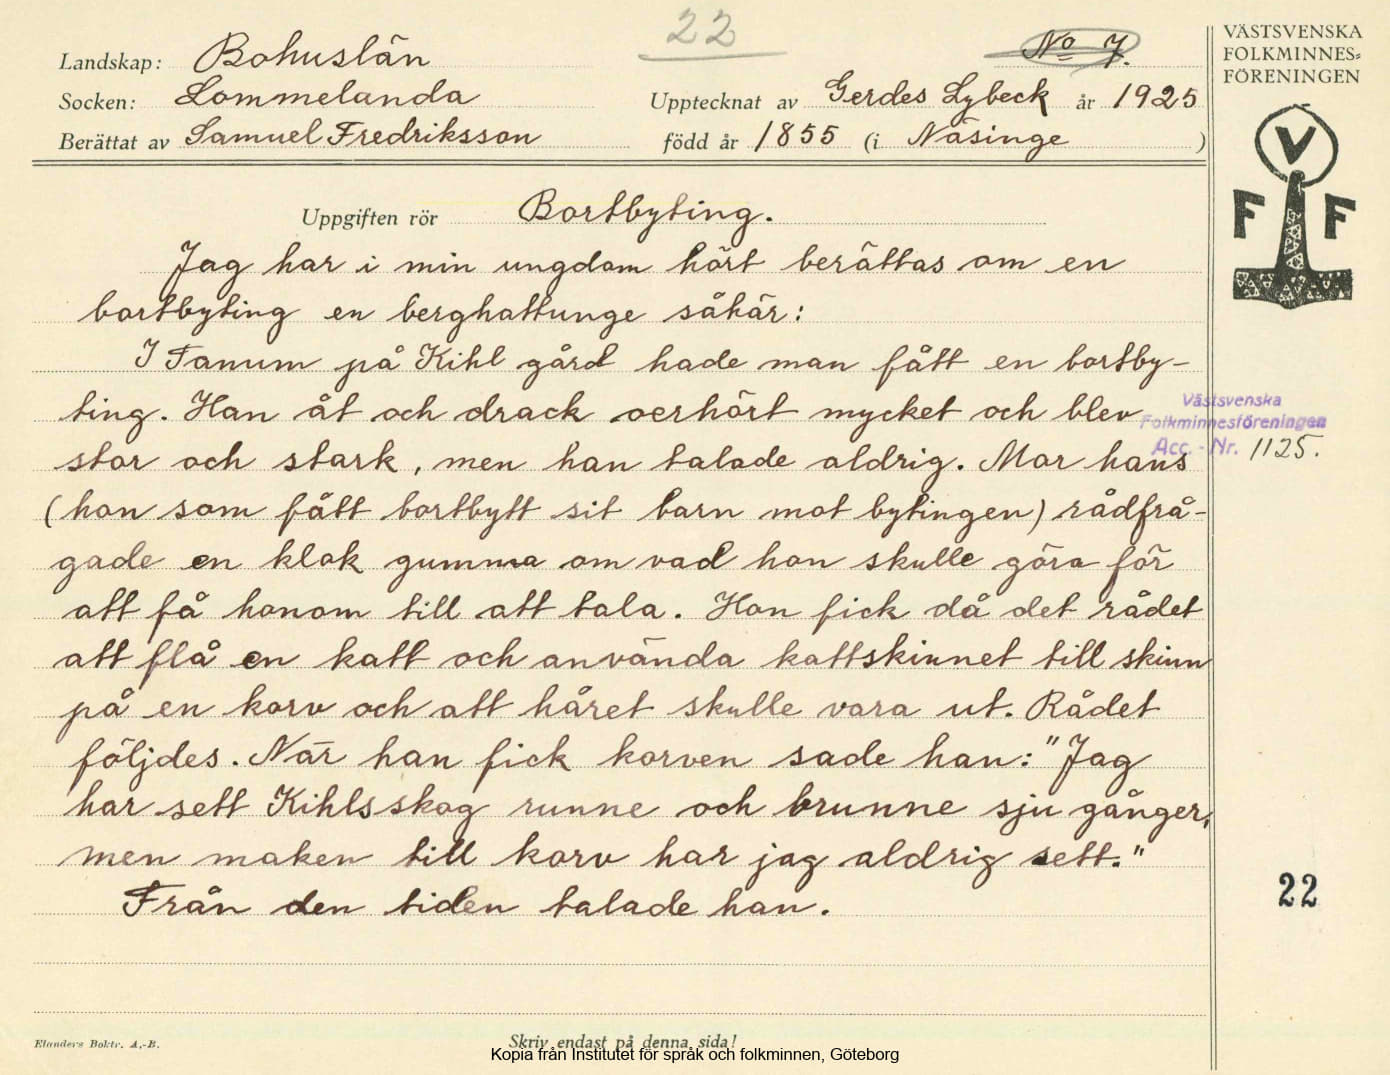 22
No 7.
VÄSTSVENSKA
FOLKMINNES=
FÖRENINGEN
Landskap: Bohuslän
Socken: Lommelanda
Upptecknat av Gerdes Lybeck år 1925
Berättat av Samuel Fredriksson
född år 1855 (i Näsinge )
V
F F
Uppgiften rör Bortbyting.
Jag har i min ungdom hört berättas om en
bortbyting en berghattunge såhär:
I Tanum på Kihl gård hade man fått en bortby-
ting. Han åt och drack oerhört mycket och blev
stor och stark, men han talade aldrig. Mor hans
(hon som fått bortbytt sit barn mot bytingen) rådfrå-
gade en klok gumma om vad hon skulle göra för
att få honom till att tala. Hon fick då det rådet
att flå en katt och använda kattskinnet till skinn
på en korv och att håret skulle vara ut. Rådet
följdes. När han fick korven sade han: "Jag
har sett Kihlsskog runne och brunne sju gånger,
men maken till korv har jag aldrig sett."
Från den tiden talade han.
Västsvenska
Folkminnesföreningen
Acc. - Nr. 1125.
22
Elanders Boktr. A.-B.
Skriv endast på denna sida!
Kopia från Institutet för språk och folkminnen, Göteborg